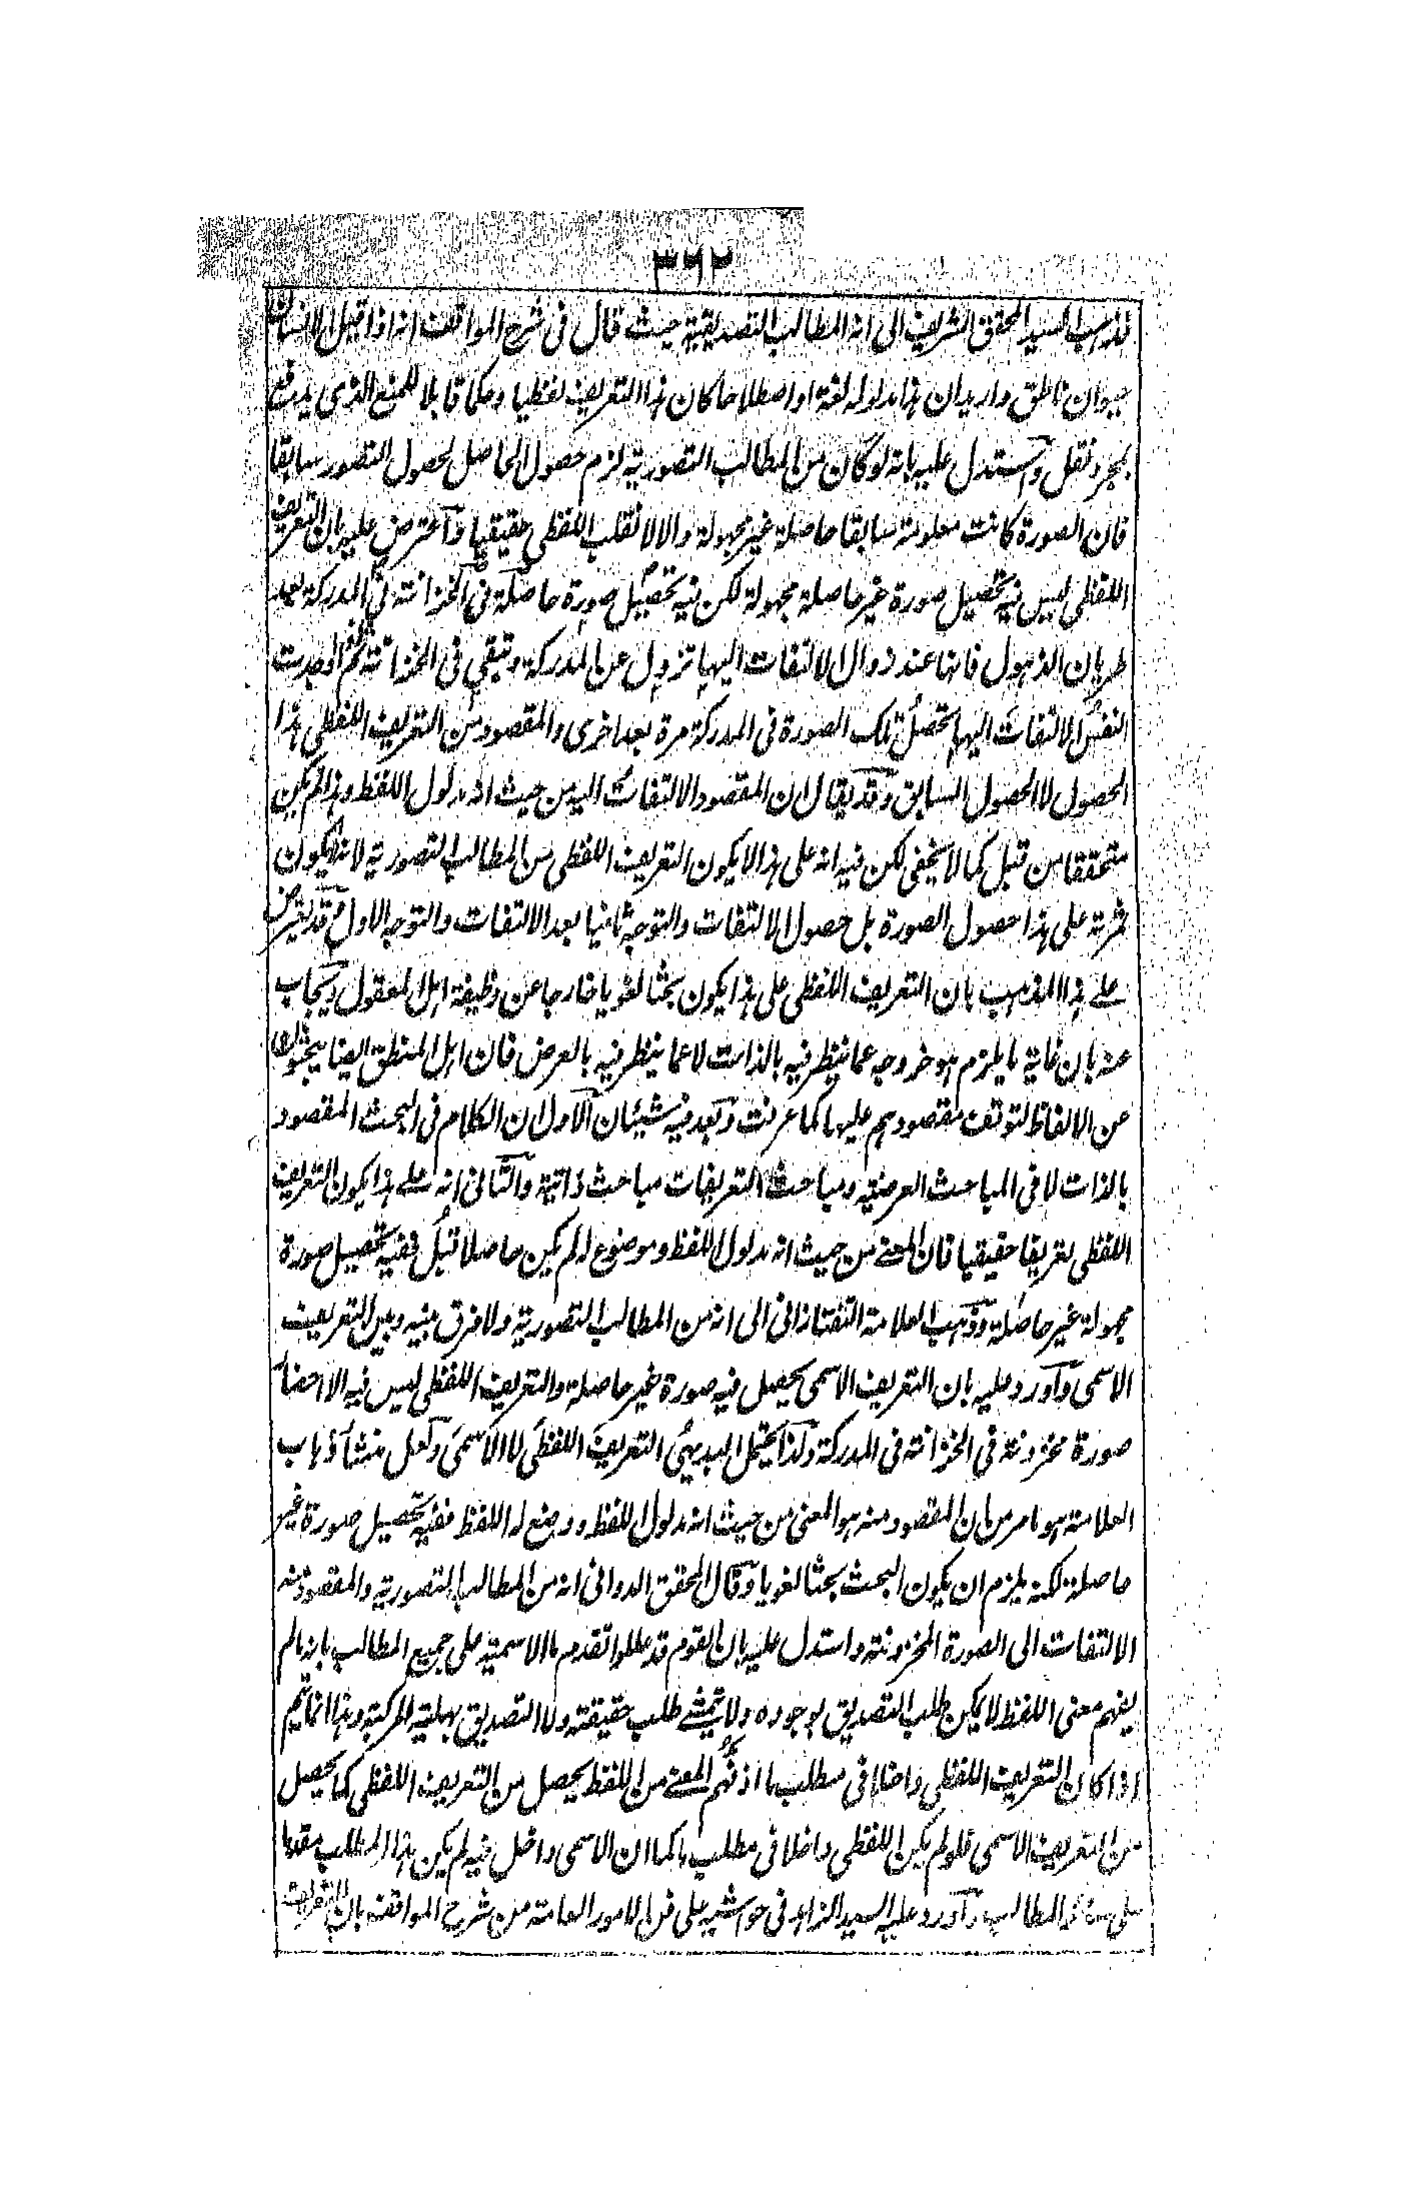 ٣٦٢
فذهب السيد المحقق الشريف الى انه المطالب التصديقية حيث قال فى شرح المواقف انه اذا قيل الانسان
حيوان ناطق واريد ان هذا مدلوله لغة او اصطلاحا كان هذا التعريف لفظيا وحكما قابلا للمنع الذى يدفع
بمجرد نقل واستدل عليه بانه لو كان من المطالب التصورية لزم حصول الحاصل لحصول التصور سابقا
فان الصورة كانت معلومة سابقا حاصلة غير مجهولة والا لانقلب اللفظى حقيقيا واعترض عليه بان التعريف
اللفظى ليس فيه تحصيل صورة غير حاصلة مجهولة لكن فيه تحصيل صورة حاصلة فى الخزانة فى المدركة بعد
طريان الذهول فانها عند زوال الالتفات اليها تزول عن المدركة وتبقى فى الخزانة ثم اذا وجدت
النفس الالتفات اليها تحصل تلك الصورة فى المدركة مرة بعد اخرى والمقصود من التعريف اللفظى هذا
الحصول لا الحصول السابق وقد يقال ان المقصود الالتفات اليه من حيث انه مدلول اللفظ وهذا لم يكن
متحققا من قبل كما لا يخفى لكن فيه انه على هذا لا يكون التعريف اللفظى من المطالب التصورية لانه لا يكون
ثمرته على هذا حصول الصورة بل حصول الالتفات والتوجه ثانيا بعد الالتفات والتوجه الاول وقد يعترض
على هذا المذهب بان التعريف اللفظى على هذا يكون بحثا لغويا خارجا عن وظيفة اهل المعقول ويجاب
عنه بان غاية ما يلزم هو خروجه عما ينظر فيه بالذات لا عما ينظر فيه بالعرض فان اهل المنطق ايضا يبحثون
عن الالفاظ لتوقف مقصودهم عليها كما عرفت وبعد فيه شيئان الاول ان الكلام فى البحث المقصود
بالذات لا فى المباحث العرضية ومباحث التعريفات مباحث ذاتية والثانى انه على هذا يكون التعريف
اللفظى تعريفا حقيقيا فان المعنى من حيث انه مدلول اللفظ وموضوع له لم يكن حاصلا قبل ففيه تحصيل صورة
مجهولة غير حاصلة وذهب العلامة التفتازانى الى انه من المطالب التصورية ولا فرق بينه وبين التعريف
الاسمى واورد عليه بان التعريف الاسمى يحصل فيه صورة غير حاصلة والتعريف اللفظى ليس فيه الا احضار
صورة مخزونة فى الخزانة فى المدركة ولذا يحتمل البديهى التعريف اللفظى لا الاسمى ولعل منشأ ذهاب
العلامة هو ما مر من ان المقصود منه هو المعنى من حيث انه مدلول اللفظ ووضع له اللفظ ففيه تحصيل صورة غير
حاصلة لكنه يلزم ان يكون البحث بحثا لغويا وقال المحقق الدوانى انه من المطالب التصورية والمقصود منه
الالتفات الى الصورة المخزونة واستدل عليه بان القوم قد عللوا تقدم ما الاسمية على جميع المطالب بانه ما لم
يفهم معنى اللفظ لا يمكن طلب التصديق بوجوده ولا يتمشى طلب حقيقته ولا التصديق بهليته المركبة وهذا انما يتم
اذا كان التعريف اللفظى داخلا فى مطلب ما اذ فهم المعنى من اللفظ يحصل من التعريف اللفظى كما يحصل
من التعريف الاسمى فلو لم يكن اللفظى داخلا فى مطلب ما كما ان الاسمى داخل فيه لم يكن هذا المطلب مقدما
على سائر المطالب واورد عليه السيد الزاهد فى حواشيه على فن الامور العامة من شرح المواقف بان التعريف